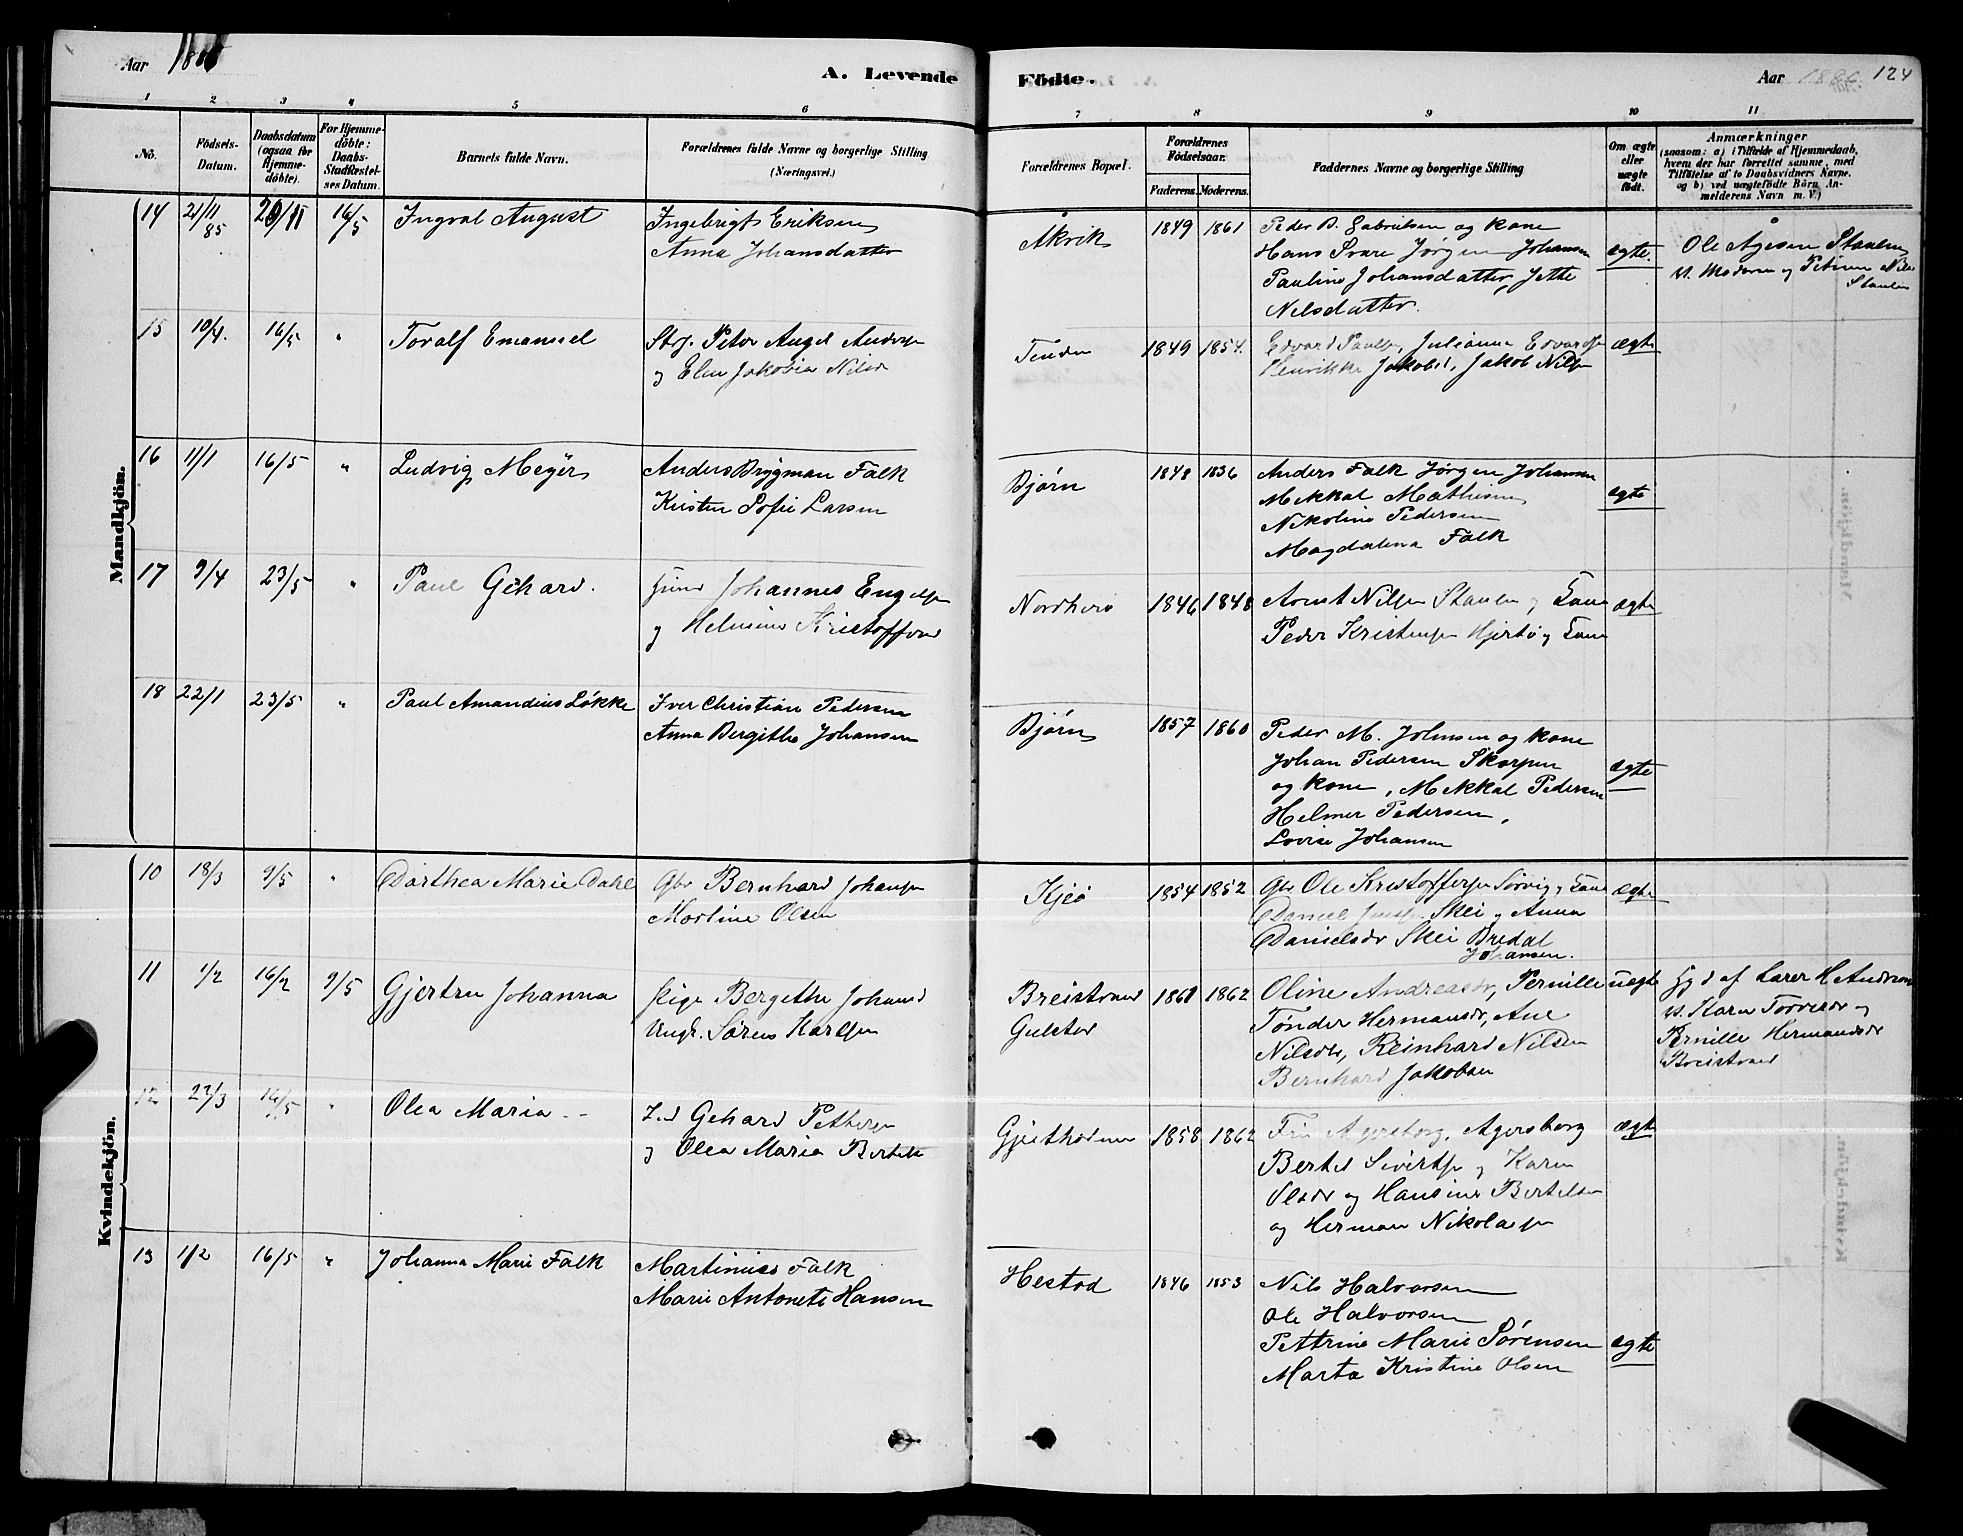 Aar 188
A. Levende Födte.
Aar 1886 124
1 2 3 4 5 6 7 8 9 10 11
No.
Födsels-Datum.
Daabsdatum (ogsaa for Hjemme-döbte).
For Hjemme-döbte: Daabs-Stadfæstel-ses Datum.
Barnets fulde Navn.
Forældrenes fulde Navne og borgerlige Stilling (Næringsvei.)
Forældrenes Bopæl.
Forældrenes Födselsaar.
Faderens. Moderens.
Faddernes Navne og borgerlige Stilling
Om ægte eller uægte födt.
Anmærkninger
(saasom: a) i Tilfælde af Hjemmedaab,
hvem der har forrettet samme, med
Tilföielse af to Daabsvidners Navne,
og b) ved uægtefödte Börn, An-
melderens Navn m. V.)
Mandkjön.
14 21/11 85 29/11 16/5 Ingval August
Ingebrigt Eriksen
Anna Johansdatter
Åkvik 1849 1861
Peder D. Gabrielsen og kone
Hans Svare Jørgen Johansen
Pauline Johansdatter, Jette
Nilsdatter.
ægte.
Ole Agesen Staulen
v. Moderen og Petrine Nils
Staulen
15 10/4. 16/5 " Toralf Emanuel
Strf. Peter Angel Anders
og Elen Jakobia Nilsd
1849 1854.
Edvard Pauls, Julianna Edvards
Henrikke Jakobsd, Jakob Nils
ægte
16 11/1 16/5 " Ludvig Meyer
Anders Brygman Falk
Kirsten Sofie Larsen
Bjørn 1848 1836
Anders Falk Jørgen Johansen
Mekkal Mathisen
Nikoline Pedersen
Magdalena Falk
ægte
17 9/4 23/5 " Paul Gehard.
Johannes Engels
og Kristoffersd
1846 1848
Arnt Nilsen Staulen og Kone
Peder Kristens Hjertø og Kone
ægte
18 22/1 23/5 " Paul Amandius Løkke
Iver Christian Pedersen
Anna Bergitha Johansen
Bjørn 1857 1860
Peder M. Johnsen og kone
Johan Pedersen Skorpen
og kone, Mekkal Pedersen
Helmer Pedersen,
Lovise Johansen
ægte
Kvindekjön.
10 18/3 9/5 " Dorthea Marie Dahl
Gbr Bernhard Johans
Martine Olsen
Kjeø 1854 1852
Gbr Ole Kristoffers Sørvig og Kone
Daniel Jens Skei og Anna
Danielsdr Skei Bredal
Johansen.
ægte
11 1/2 16/2 9/5 Gjertru Johanna
Pige Bergithe Johansd
Ungk. Søren Karlsen
Breistrand
1861 1862
Oline Andreasdr, Pernille
Tønder Hermansdr, Ane
Nilsdr, Reinhard Nilsen
Bernhard Jakobsen
uægte
Hjd af Lærer H Andersen
v. Karen Torresdr og
Pernille Hermansdr
Breistrand
12 22/3 16/5 " Olea Maria
Gehard Petters
og Olea Maria Bertels
1858 1862
Fru Agersborg, Agersborg
Bertel Sivertsen og Karen
Olsdr og Hansine Bertelsen
og Herman Nikolais
ægte
13 1/2 16/5 " Johanna Marie Falk
Martinius Falk
Marie Antonete Hansen
Hestad 1846 1853
Nils Halvorsen
Ole Halvorsen
Pettrine Marie Sørensen
Marta Kristine Olsen
ægte